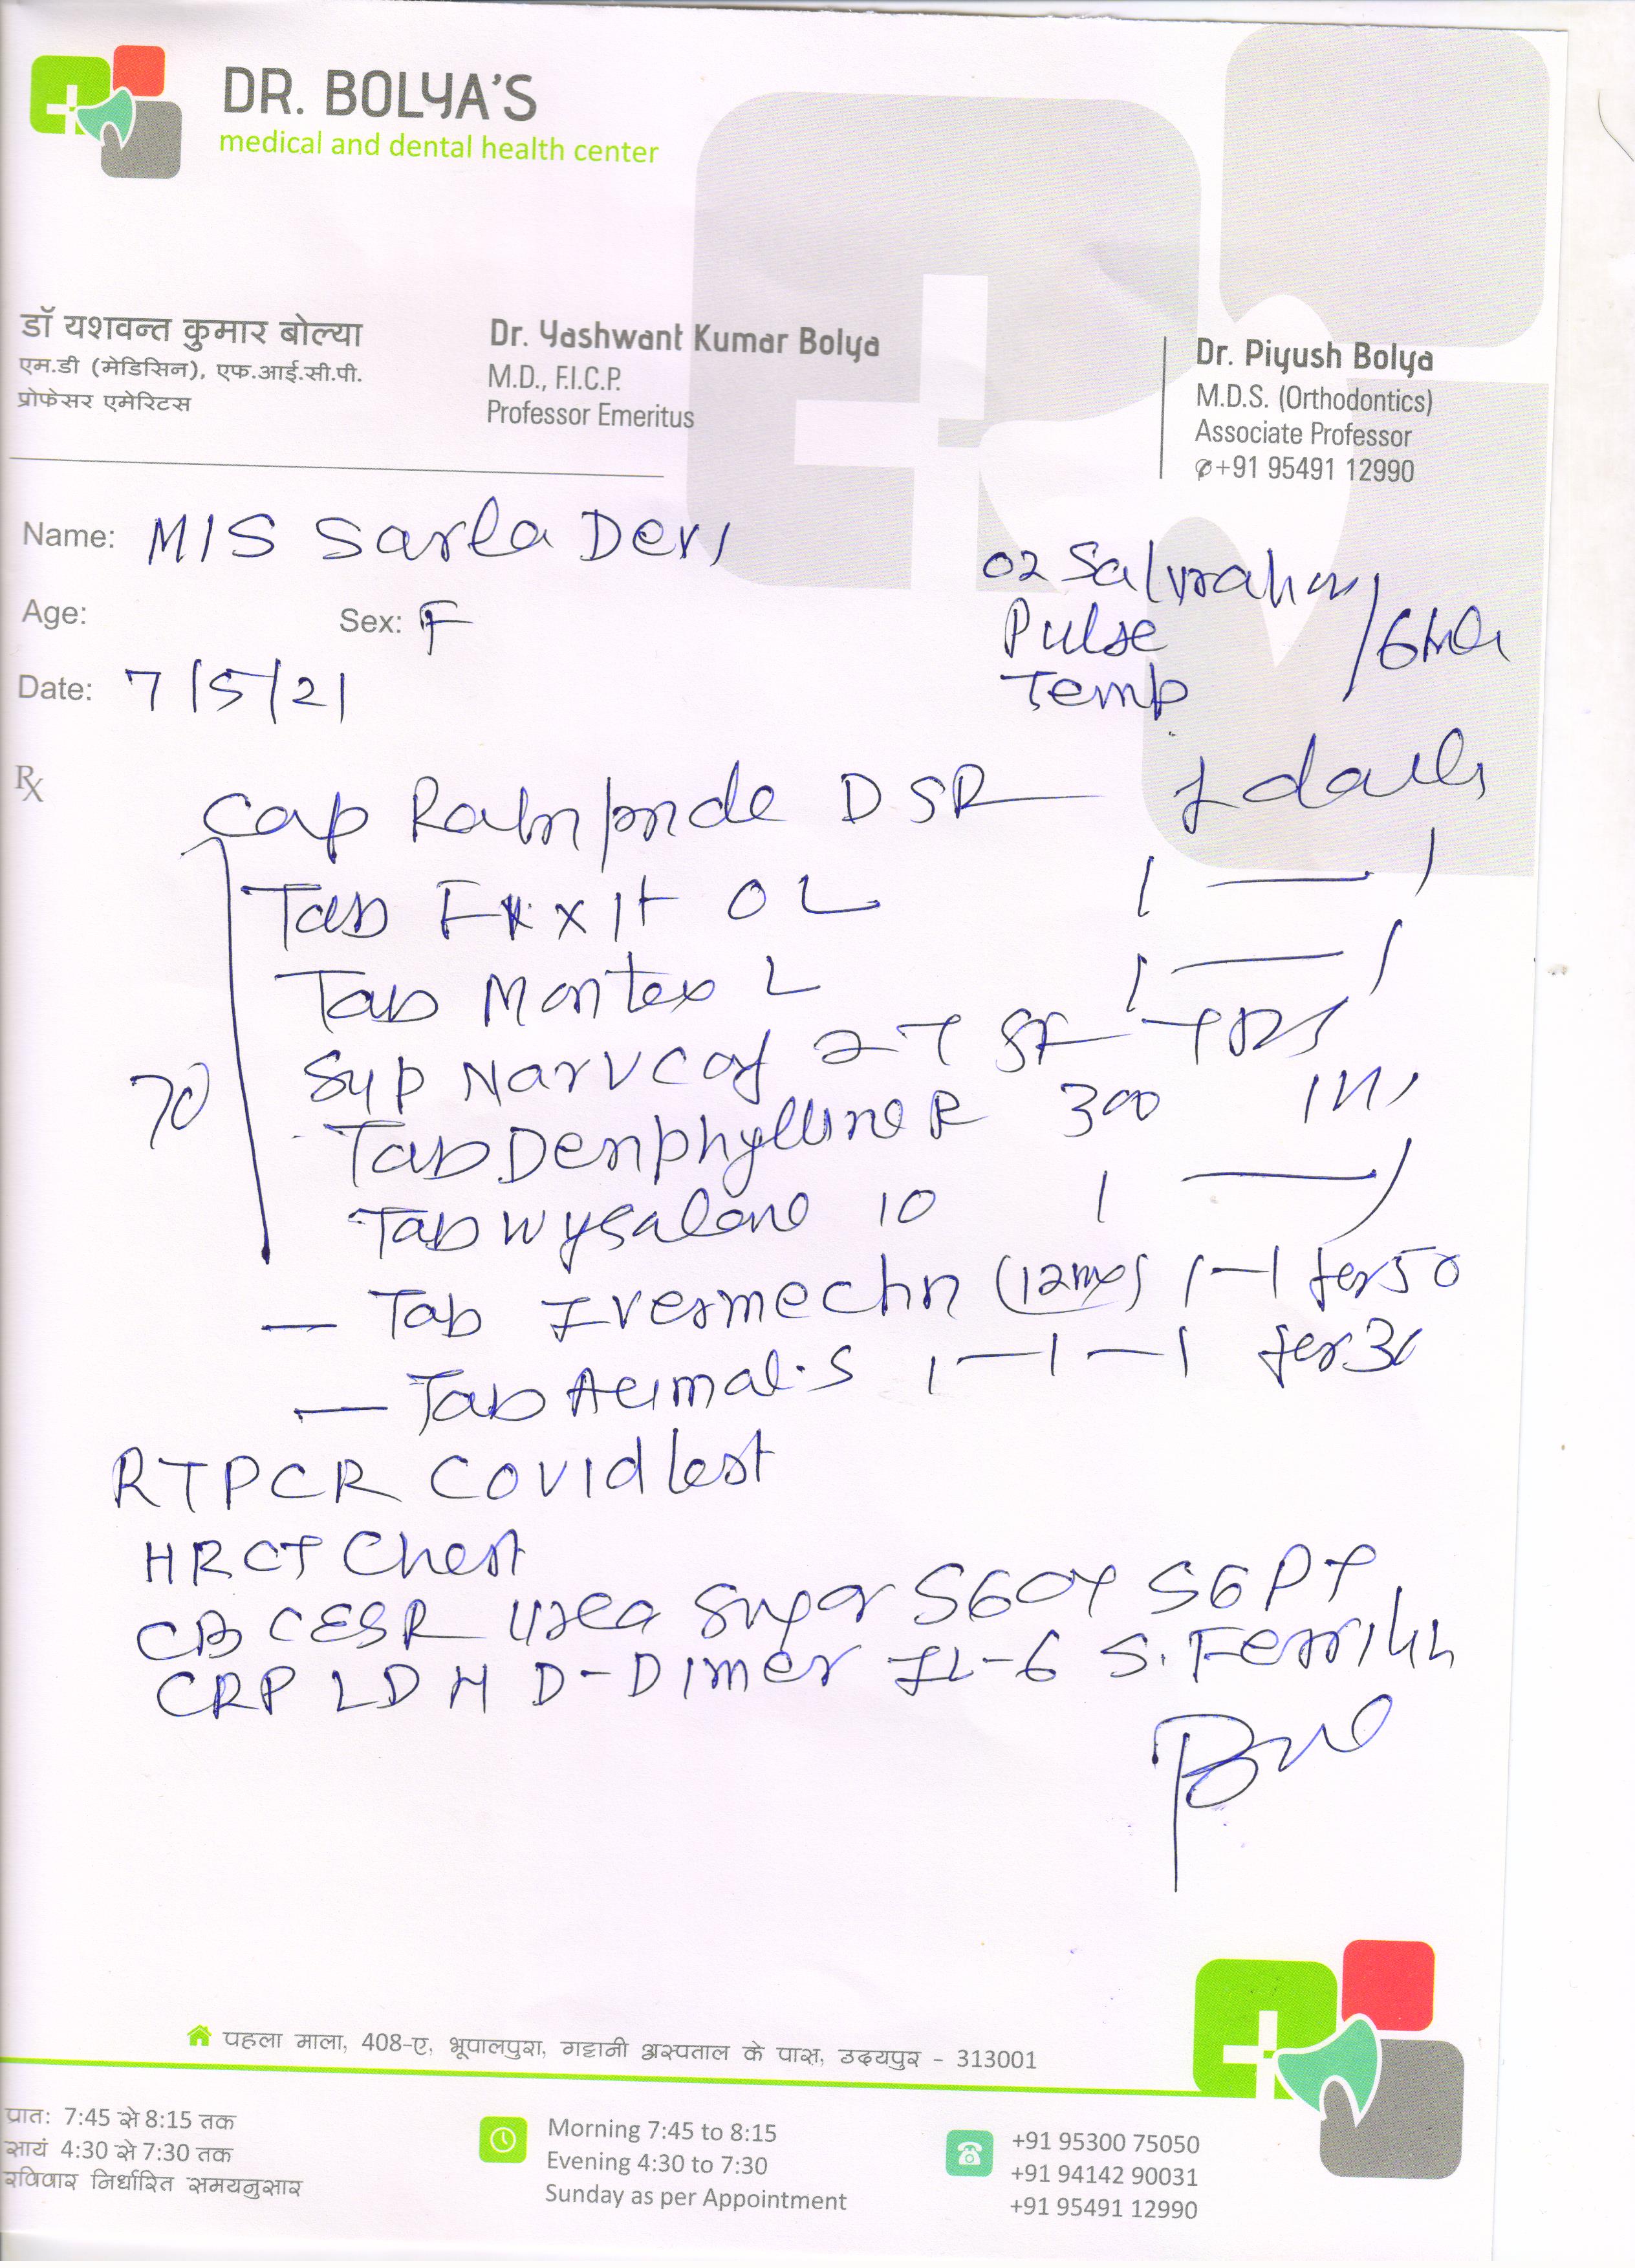 DR. BOLYA'S
medical and dental health center
डॉ यशवन्त कुमार बोल्या
एम.डी (मेडिसिन), एफ.आई.सी.पी.
प्रोफेसर एमेरिटस
Dr. Yashwant Kumar Bolya
M.D., F.I.C.P.
Professor Emeritus
Dr. Piyush Bolya
M.D.S. (Orthodontics)
Associate Professor
✆+91 95491 12990
Name: M/S Sarla Devi
Age: Sex: F
Date: 7/5/21
O2 Saturation
Pulse /6hr
Temp
Rx
Cap DSR 1 daily
Tab OL 1 — 1
Tab Montex L 1 — 1
Syp 2T SF TDS
Tab Denphylline R 300
Tab Wysolone 10 1 — 1
— Tab Ivermectin (12mg) 1—1 for 5D
— Tab 1—1—1 for 3d
RTPCR Covid test
HRCT Chest
CBC ESR Urea Sugar SGOT SGPT
CRP LDH D-Dimer IL-6 S. Ferritin
पहला माला, 408-ए, भूपालपुरा, गट्टानी अस्पताल के पास, उदयपुर - 313001
प्रात: 7:45 से 8:15 तक
सायं 4:30 से 7:30 तक
रविवार निर्धारित समयनुसार
Morning 7:45 to 8:15
Evening 4:30 to 7:30
Sunday as per Appointment
+91 95300 75050
+91 94142 90031
+91 95491 12990